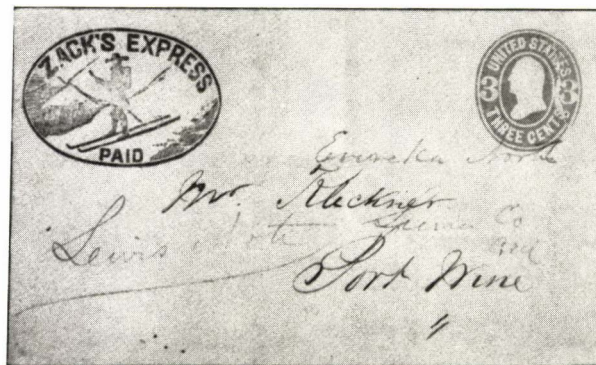 ZACK'S EXPRESS
PAID
UNITED STATES
3 3
THREE CENTS
Eureka North
Mr. Kleckner
Sierra Co
Lewis
Port Wine
"